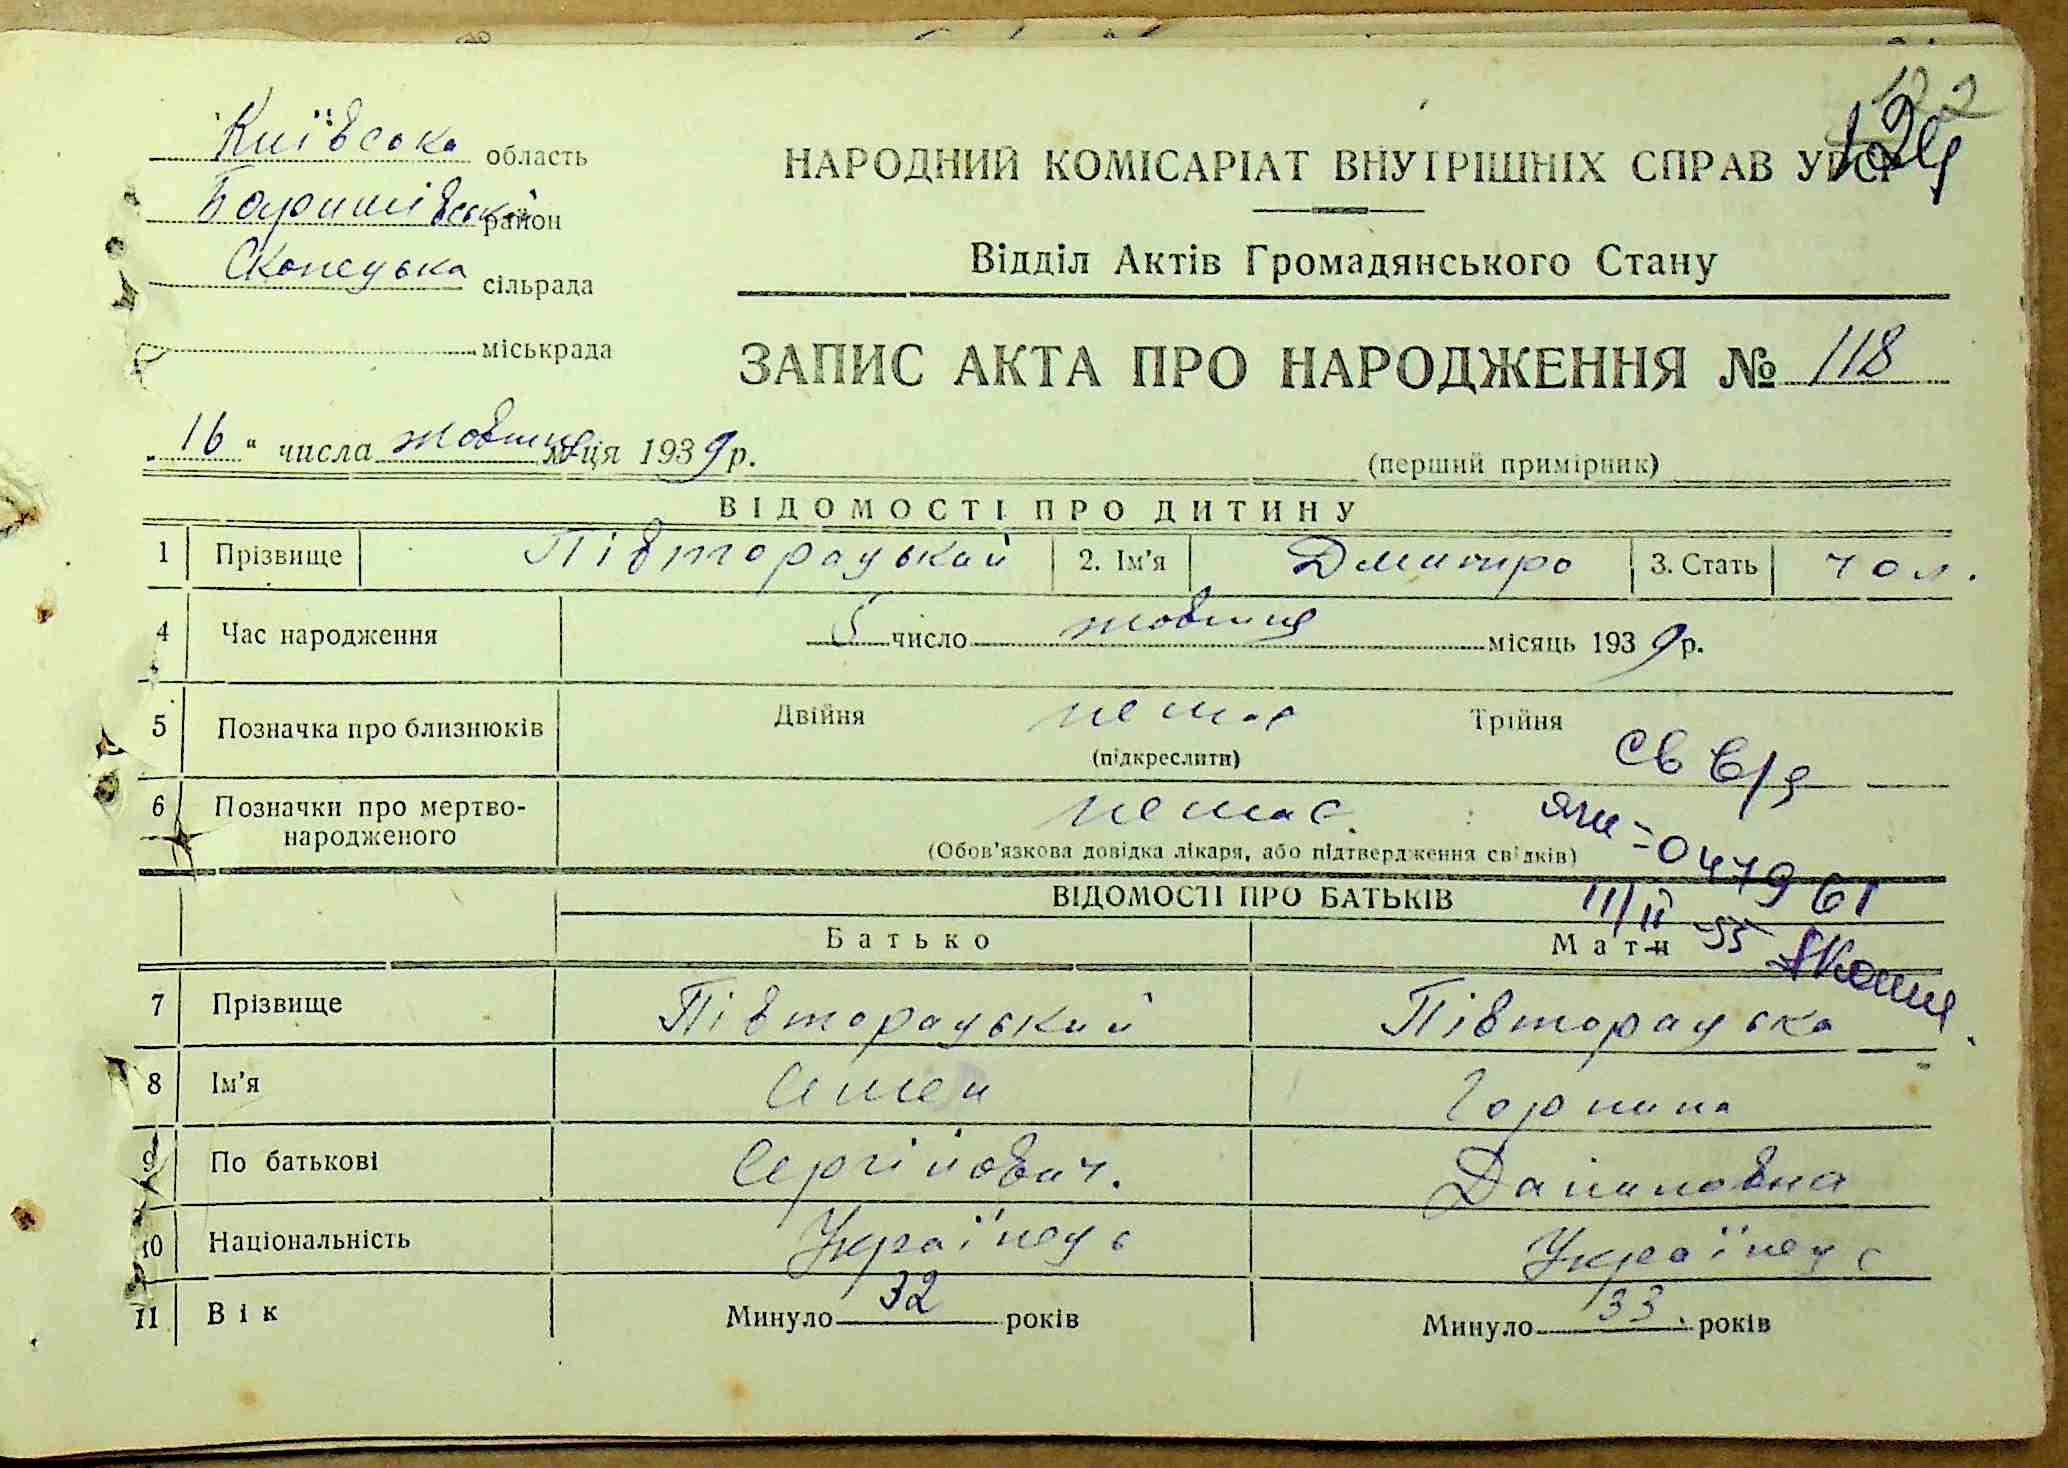 122
124
Київська область
Баришівський район
Скопецька сільрада
міськрада
НАРОДНИЙ КОМІСАРІАТ ВНУТРІШНІХ СПРАВ УРСР
Відділ Актів Громадянського Стану
ЗАПИС АКТА ПРО НАРОДЖЕННЯ № 118
„16“ числа жовтня м-ця 1939 р.
(перший примірник)
ВІДОМОСТІ ПРО ДИТИНУ
1 Прізвище Півторацький 2. Ім'я Дмитро 3. Стать чол.
4 Час народження 5 число жовтня місяць 1939 р.
5 Позначка про близнюків Двійня немає Трійня
(підкреслити)
св в/я
6 Позначки про мертво-
народженого немає.
(Обов'язкова довідка лікаря, або підтвердження свідків)
047961
ВІДОМОСТІ ПРО БАТЬКІВ
III/II-55
Батько Мати
7 Прізвище Півторацький Півторацька
8 Ім'я Семен Горпина
9 По батькові Сергійович. Даниловна
10 Національність Українець Українець
11 Вік Минуло 32 років Минуло 33. років